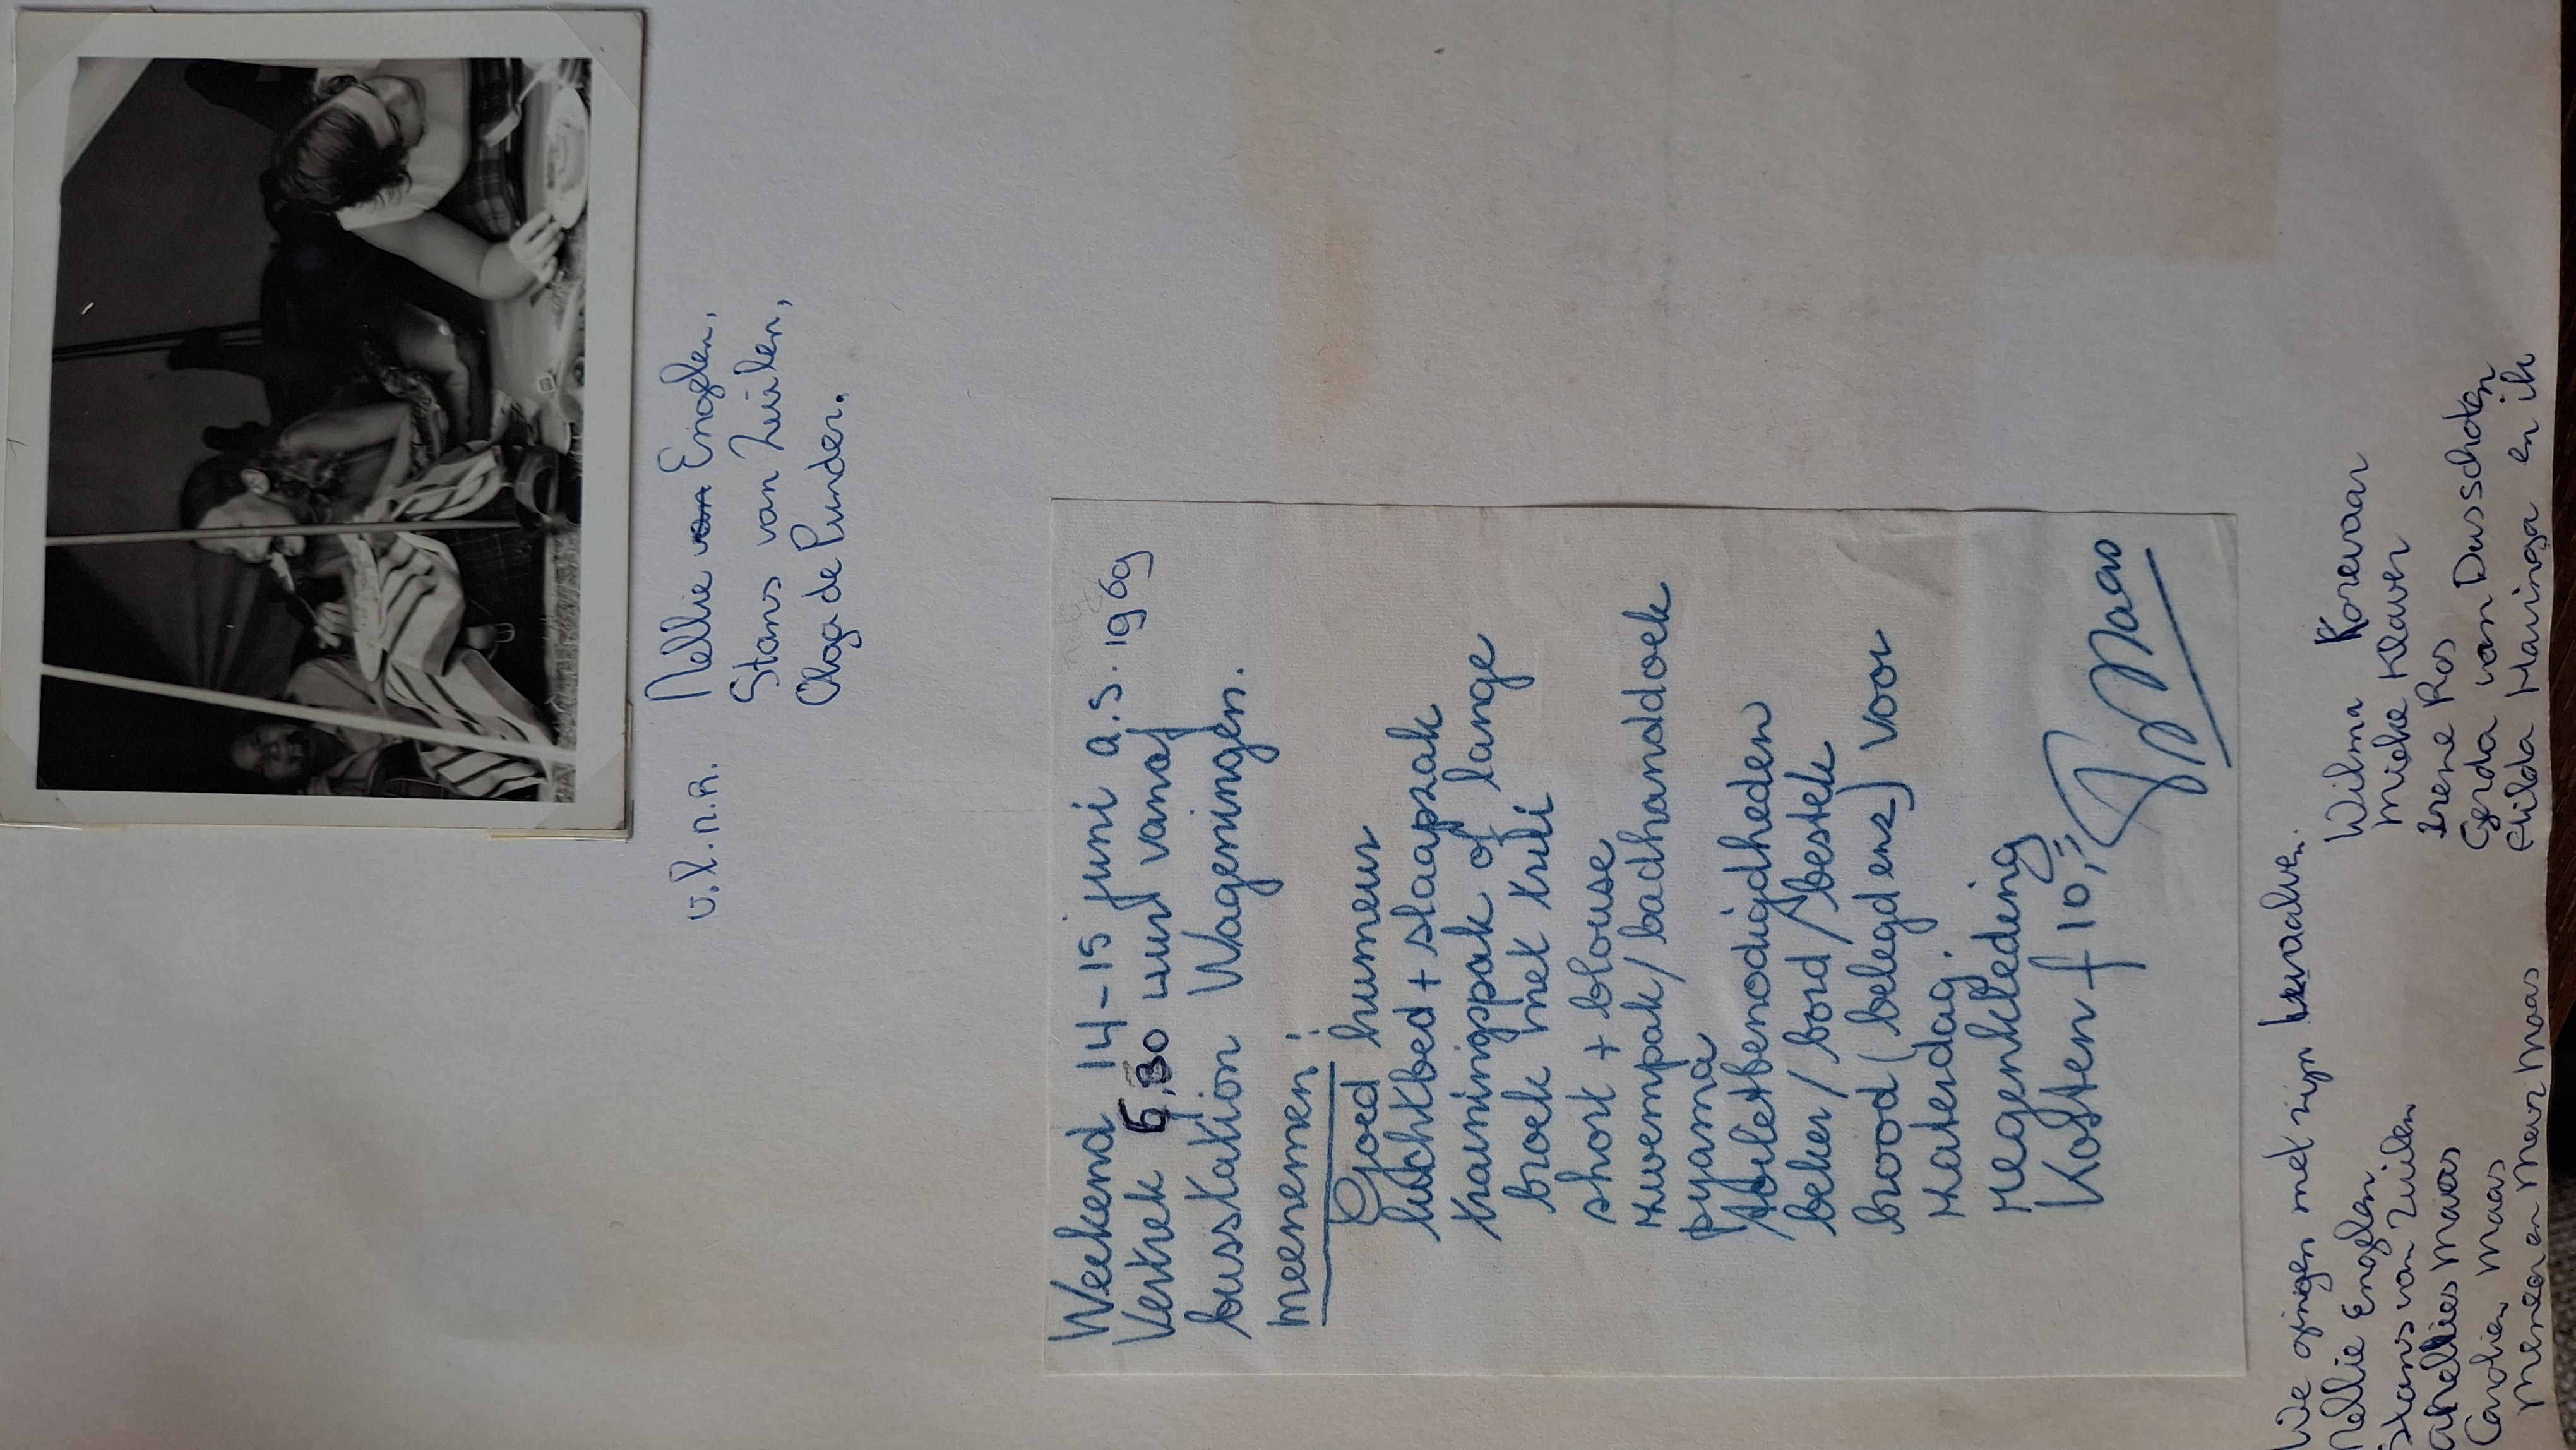 v.l.n.r. Nellie van Engelen,
Stans van Zuilen,
Olga de Punder.
Weekend 14-15 juni a.s. 1969
Vertrek 6,30 uur vanaf
busstation Wageningen.
meenemen:
Goed humeur
luchtbed + slaapzak
trainingpak of lange
broek met trui
short + blouse
zwempak/badhanddoek
pyama
toiletbenodigdheden
beker/bord/bestek
brood (beleg enz) voor
zaterdag.
regenkleding
Kosten f 10,=
Maas
We gingen met zijn twaalven.
Nellie Engelen
Stans van Zuilen
Carolien Maas
Meneer en Mevr Maas
Wilma Korevaar
Mieke Klaver
Irene Ras
Gerda van Dusschoten
Hilda Haringa en ik